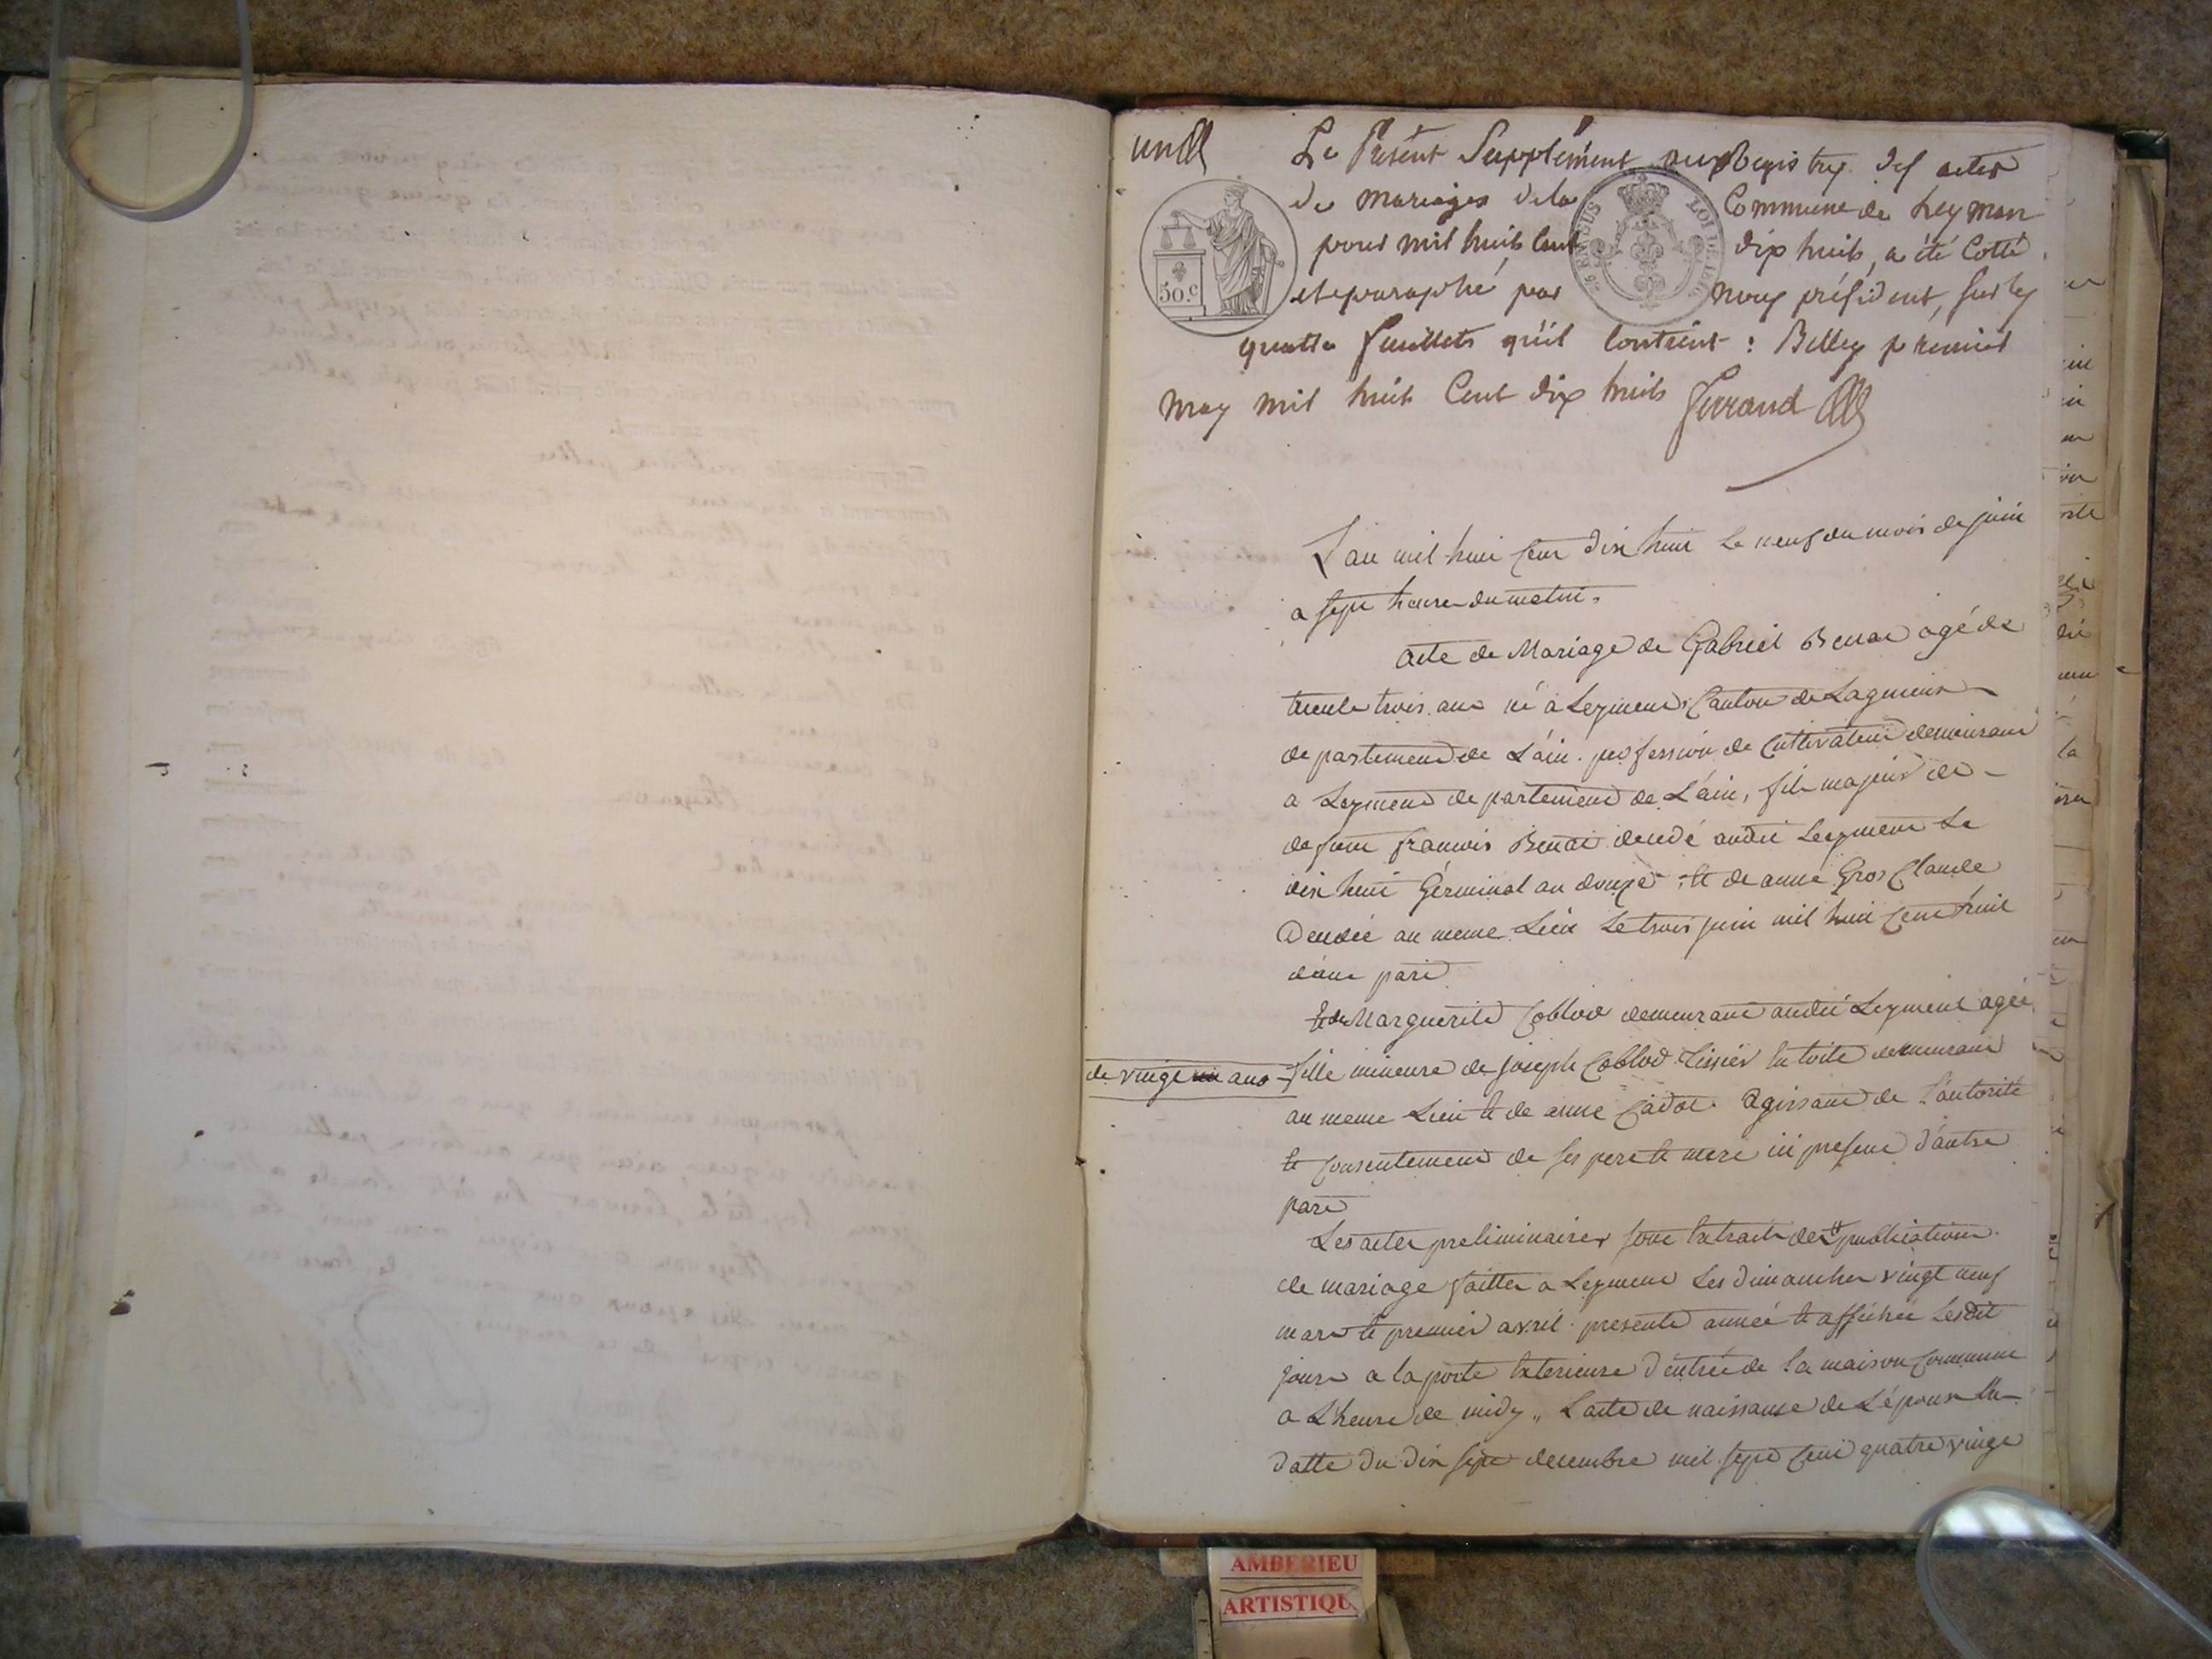 un
Le Présent Supplément aux Registres des actes
de mariages dela Commune de Leyman
pour mil huit Cent dix huit, a été Cotté
et paraphé par nous président, sur les
quatre feuillets qu'il Contient : Belley premier
may mil huit Cent dix huit Ferrand
50.c
EN SUS
LOI DE 1816
L'an mil huit Cent dix huit Le neuf du mois de juin
a sept heures du matin,
acte de Mariage de Gabriel agé de
trente trois ans né à Leyment Canton de Lagnieux
departement de L'ain. profession de Cultivateur demeurant
a Leyment departement de L'ain, fils majeur de
de feu francois decedé audit Leyment Le
dix huit Gérminal an douze et de anne Gros Claude
Decedée au meme Lieu Le trois juin mil huit Cent
d'une part
Et de Marguerite demeurant audit Leyment agée
de vingt un ans fille mineure de joseph Tissier en toile demeurant
au meme Lieu et de anne agissant de L'autorité
et Consentement de ses pere et mere ici present d'autre
part
Les actes preliminaires sont Extraits des publications
de mariage faittes a Leyment Les dimanches vingt neuf
mars et premier avril presente année et affichée Lesdit
jours a la porte Exterieure d'entrée de La maison Commune
a L'heure de midy,, L'acte de naissance de L'époux En
datte du dix sept decembre mil sept Cent quatre vingt
AMBERIEU
ARTISTIQU